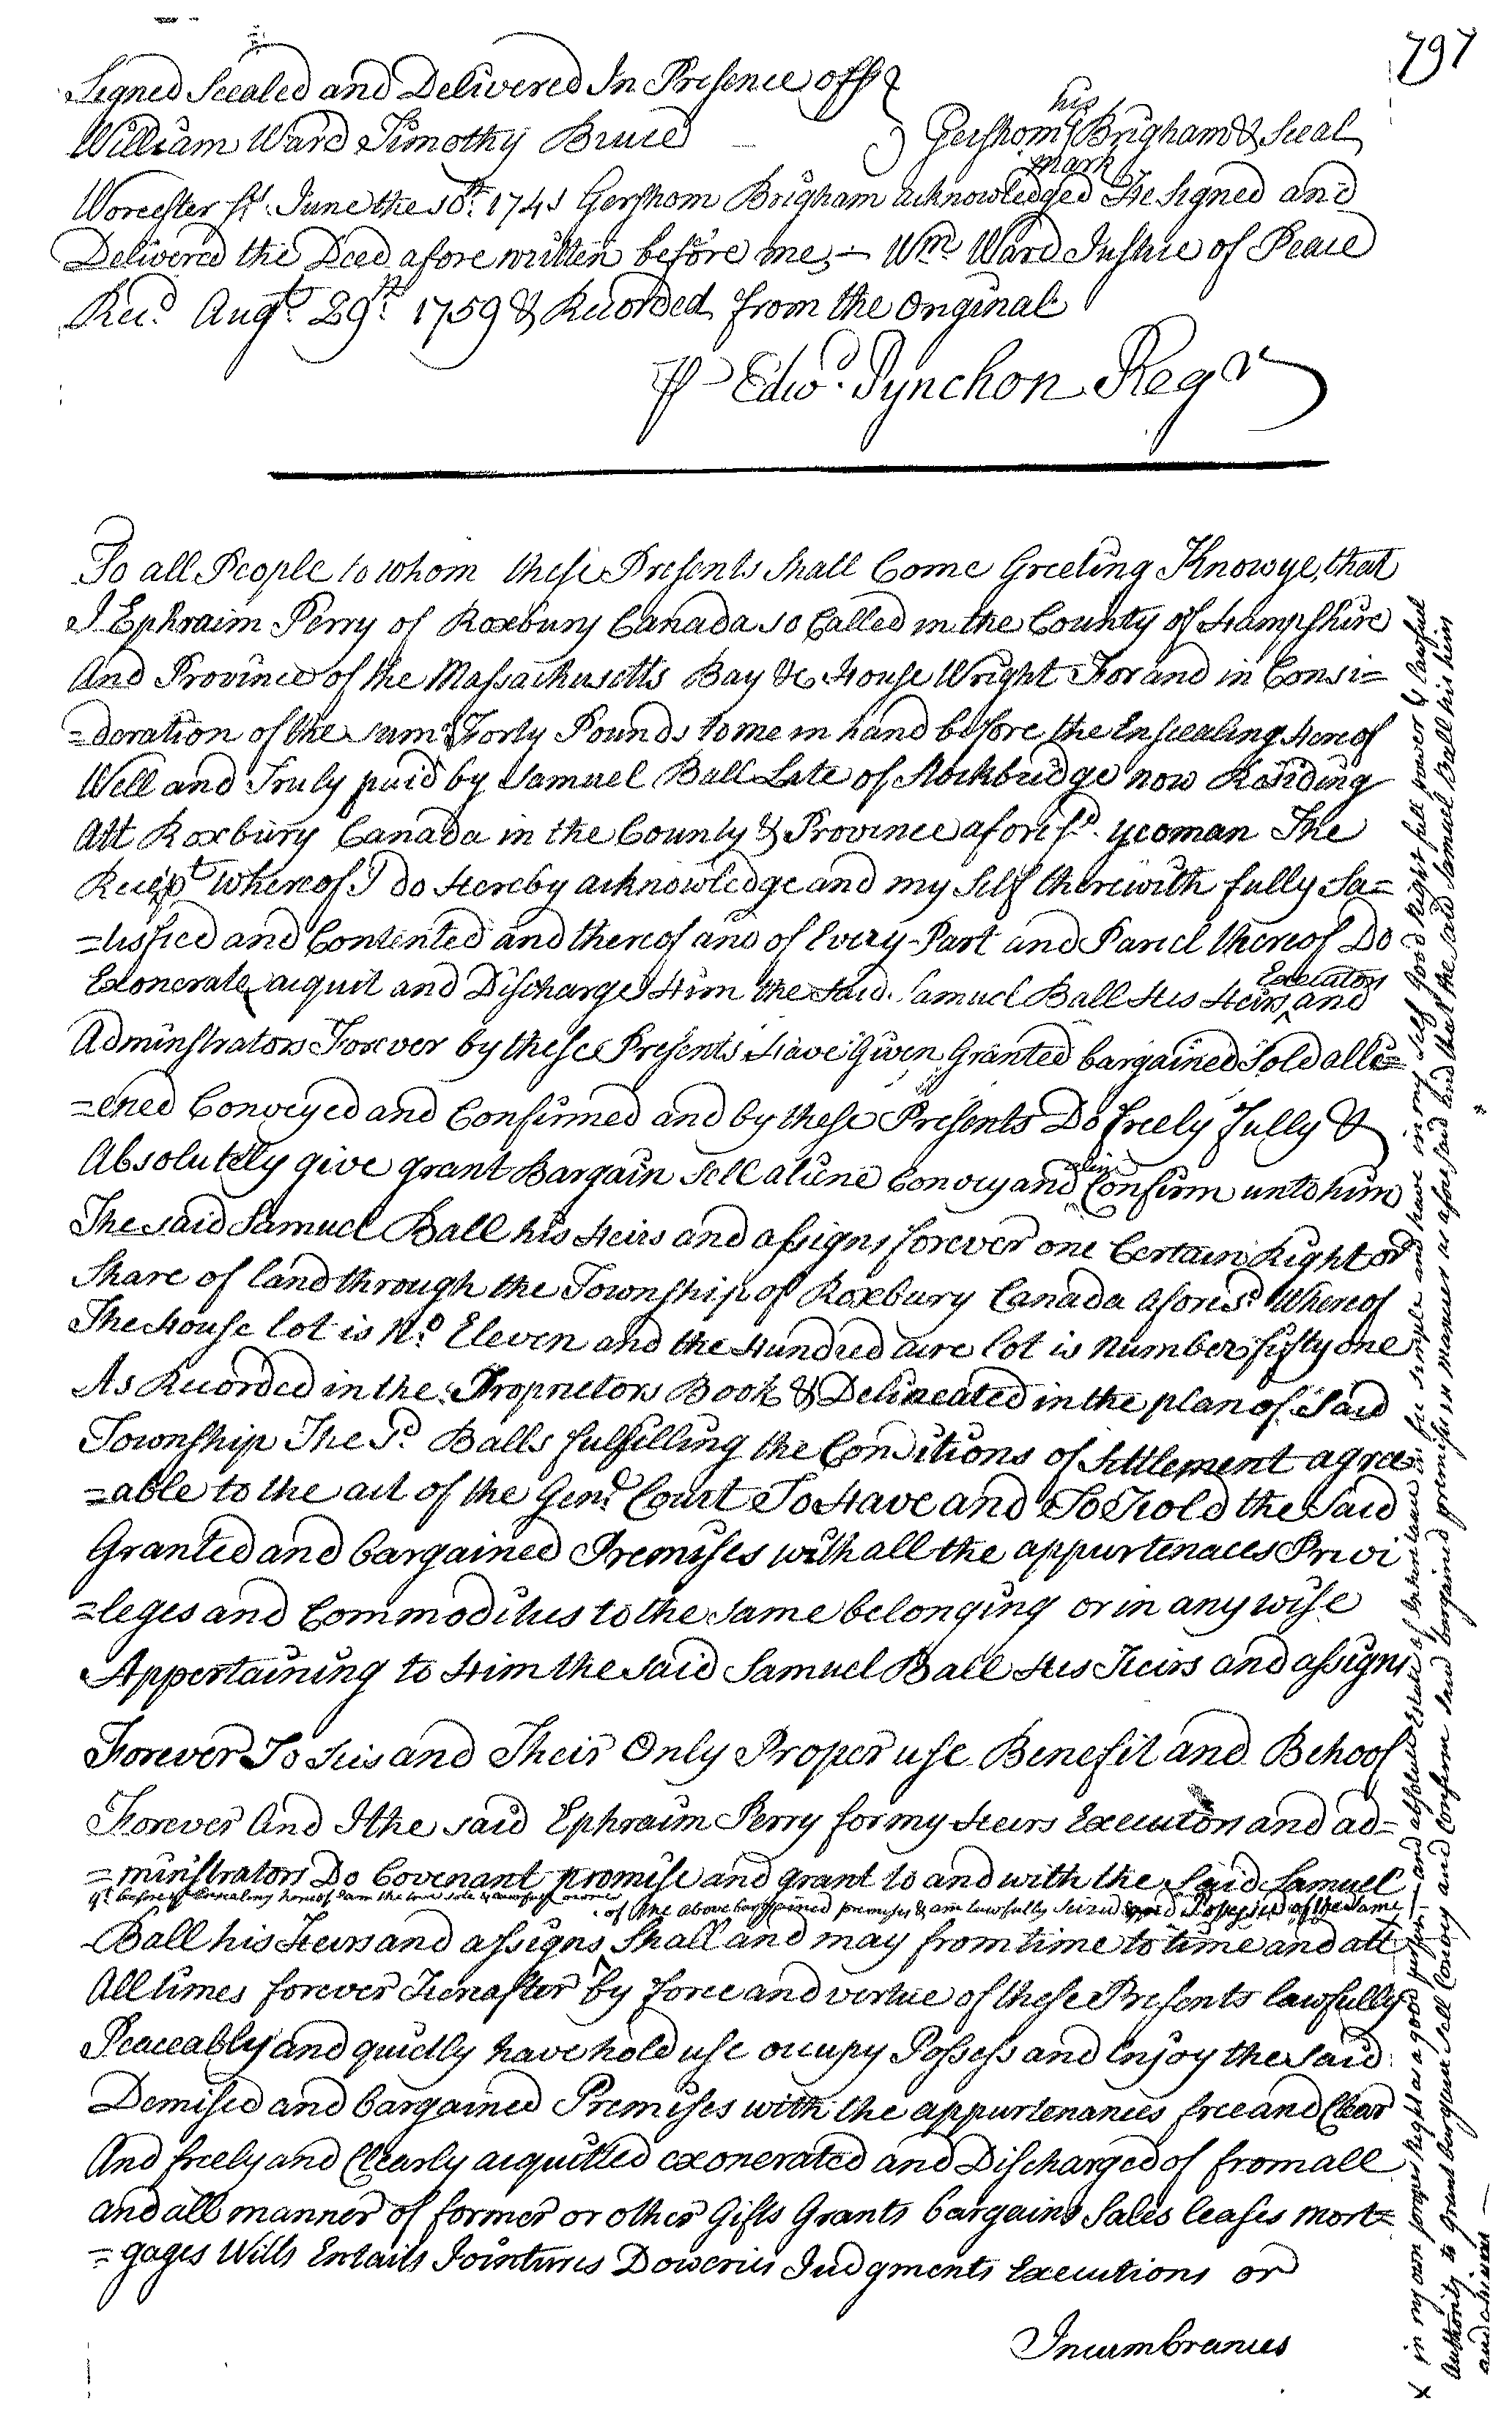 797
Signed Sealed and Delivered In Presence off
William Ward Timothy Bruce } Gershom his mark Brigham & Seal
Worcester ss. June the 10th. 1741 Gershom Brigham acknowledged He Signed and
Delivered the Deed afore written before me, – Wm Ward Justice of Peace
Recd. Augt. 29th. 1759 & Recorded from the Original
P Edwd. Pynchon Regr
To all People to whom these Presents Shall Come Greeting Know ye, that
I Ephraim Perry of Roxbury Canada so Called in the County of Hampshire
And Province of the Massachusetts Bay &c House Wright For and in Consi=
=deration of the sum of Forty Pounds to me in hand before the Ensealing Hereof
Well and Truly paid by Samuel Ball Late of Stockbridge now Residing
Att Roxbury Canada in the County & Province aforesd. yeoman The
Receipt whereof I do Hereby acknowledge and my Self therewith fully Sa=
=tisfied and Contented and thereof and of Every Part and Parcel thereof Do
Exonerate acquit and Discharge Him the said Samuel Ball His Heirs Executors and
Adminstrators Forever by these Presents Have Given Granted bargained Sold alli=
=ened Conveyed and Confirmed and by these Presents Do freely fully &
Absolutely give grant Bargain Sell aliene Convey and Confirm unto him
The said Samuel Ball his Heirs and assigns forever one Certain Right or
Share of land through the Township of Roxbury Canada aforesd. Whereof
The House lot is No. Eleven and the Hundred acre lot is Number fifty one
As Recorded in the Proprietors Book & Delineated in the plan of Said
Township The Sd. Balls fulfilling the Conditions of Settlement agree
=able to the act of the Genl. Court To Have and To Hold the Said
Granted and bargained Premises with all the appurtenaces Privi
=leges and Commodities to the same belonging or in any wise
Appertaining to Him the said Samuel Ball His Heirs and assigns
Forever To His and Their Only Proper use Benefit and Behoof
Forever And I the said Ephraim Perry for my Heirs Executors and ad=
=ministrators Do Covenant promise and grant to and with the Said Samuel
yt. before ye Ensealing hereof I am the true sole & lawfull owner of the above bargained premises & am lawfully Seized and Possessed of the Same
Ball his Heirs and assigns Shall and may from time to time and att
All times forever Hereafter by force and vertue of these Presents lawfully
Peaceably and quietly have hold use occupy Possess and Enjoy the Said
Demised and bargained Premises with the appurtenances free and Clear
And freely and Clearly acquitted exonerated and Discharged of from all
and all manner of former or other Gifts Grants bargains Sales leases Mort=
=gages Wills Entails Jointures Doweries Judgments Executions or
Incumbrances
x in my own proper Right as a good perfect and absolute Estate of Inheritance in fee simple and have in my self good Right full power & lawful
Authority to grant bargain Sell Convey and Confirm Said bargained premises in manner as aforesaid and that the said Samuel Ball his heirs
and assigns